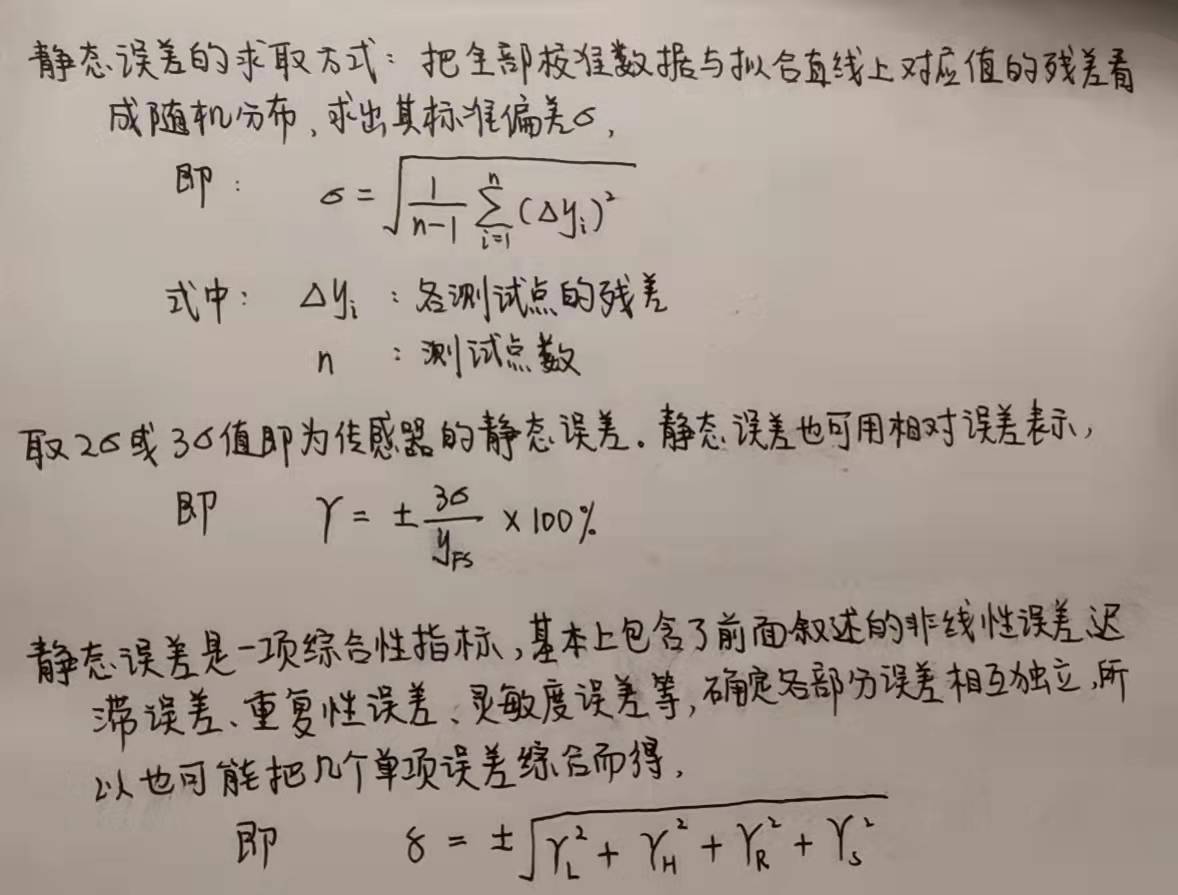 静态误差的求取方式：把全部校准数据与拟合直线上对应值的残差看
成随机分布，求出其标准偏差σ，
即： σ = √(1/(n-1) ∑_{i=1}^{n} (Δy_i)²)
式中： Δy_i ：各测试点的残差
n ：测试点数
取2σ或3σ值即为传感器的静态误差。静态误差也可用相对误差表示，
即 γ = ± 3σ/y_FS × 100%
静态误差是一项综合性指标，基本上包含了前面叙述的非线性误差、迟
滞误差、重复性误差、灵敏度误差等，确定各部分误差相互独立，所
以也可能把几个单项误差综合而得，
即 δ = ±√(γ_L² + γ_H² + γ_R² + γ_S²)